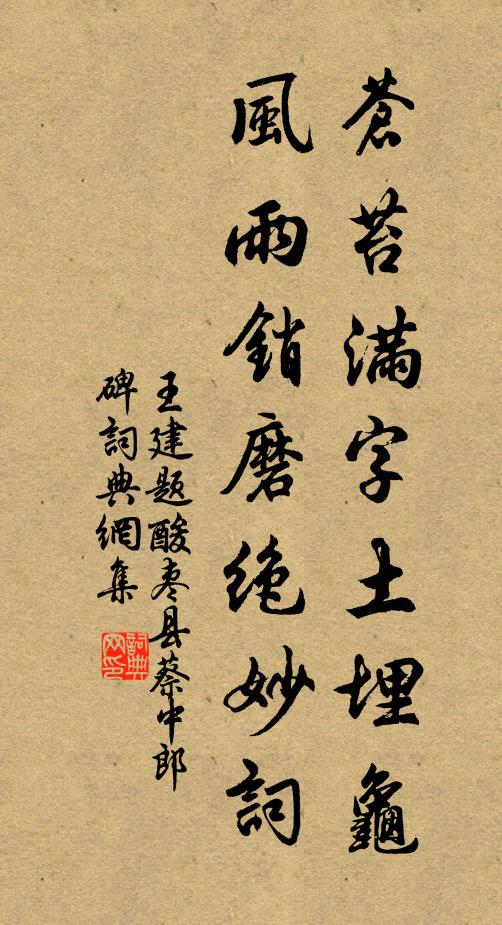 蒼苔满字土埋龜
風雨銷磨绝妙詞
王建题酸枣县蔡中郎
碑詞典網集
詞典网印